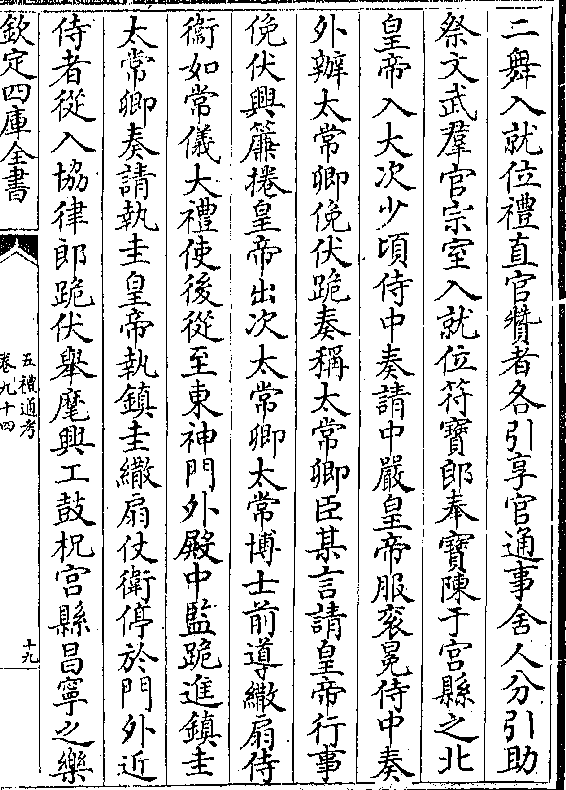 二舞入就位禮直官贊者各引享官通事舍人分引助
祭文武羣官宗室入就位符寶郎奉寶陳于宮縣之北
皇帝入大次少頃侍中奏請中嚴皇帝服衮冕侍中奏
外辦太常卿俛伏跪奏稱太常卿臣某言請皇帝行事
俛伏興簾捲皇帝出次太常卿太常博士前導繖扇侍
衞如常儀大禮使後從至東神門外殿中監跪進鎮圭
太常卿奏請執圭皇帝執鎮圭繖扇仗衛停於門外近
侍者從入協律郎跪伏舉麾興工鼓柷宮縣昌寧之樂
欽定四庫全書
五禮通考
卷九十四
十九